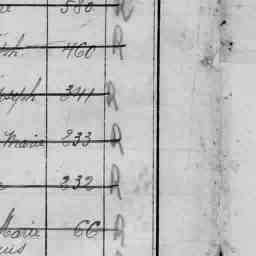 580 R
ph 460 R
oseph 341 R
Marie 233 R
232 R
Marie 66 R
uis